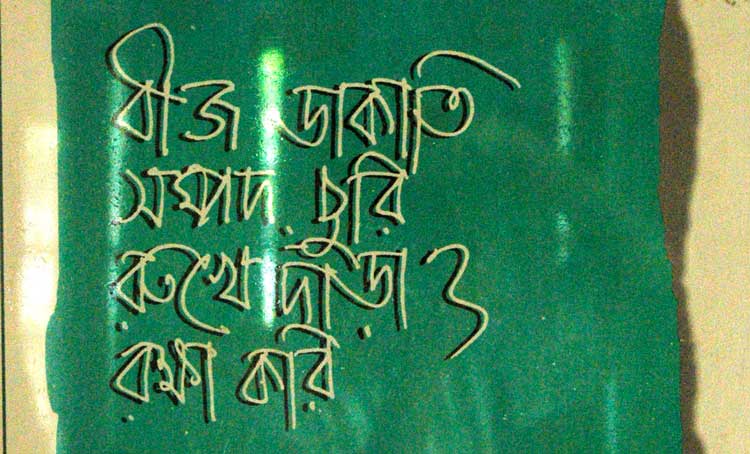 বীজ ডাকাতি
সম্পদ চুরি
রুখে দাঁড়াও
রক্ষা করি